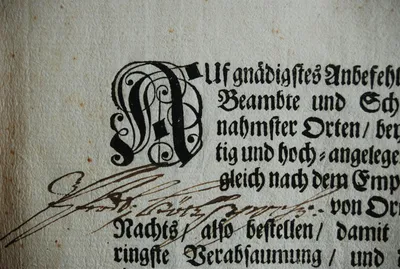 AUf gnädigstes Anbefehl
Beambte und Sch
nahmster Orten / bey
tig und hoch⸗angelege
gleich nach dem Emp
von Or
Nachts / also bestellen / damit
ringste Verabsaumung / und